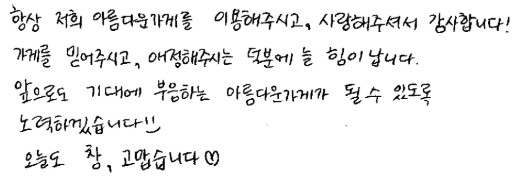 항상 저희 아름다운가게를 이용해주시고, 사랑해주셔서 감사합니다!
가게를 믿어주시고, 애정해주시는 덕분에 늘 힘이 납니다.
앞으로도 기대에 부응하는 아름다운가게가 될 수 있도록
노력하겠습니다!!
오늘도 참, 고맙습니다♡